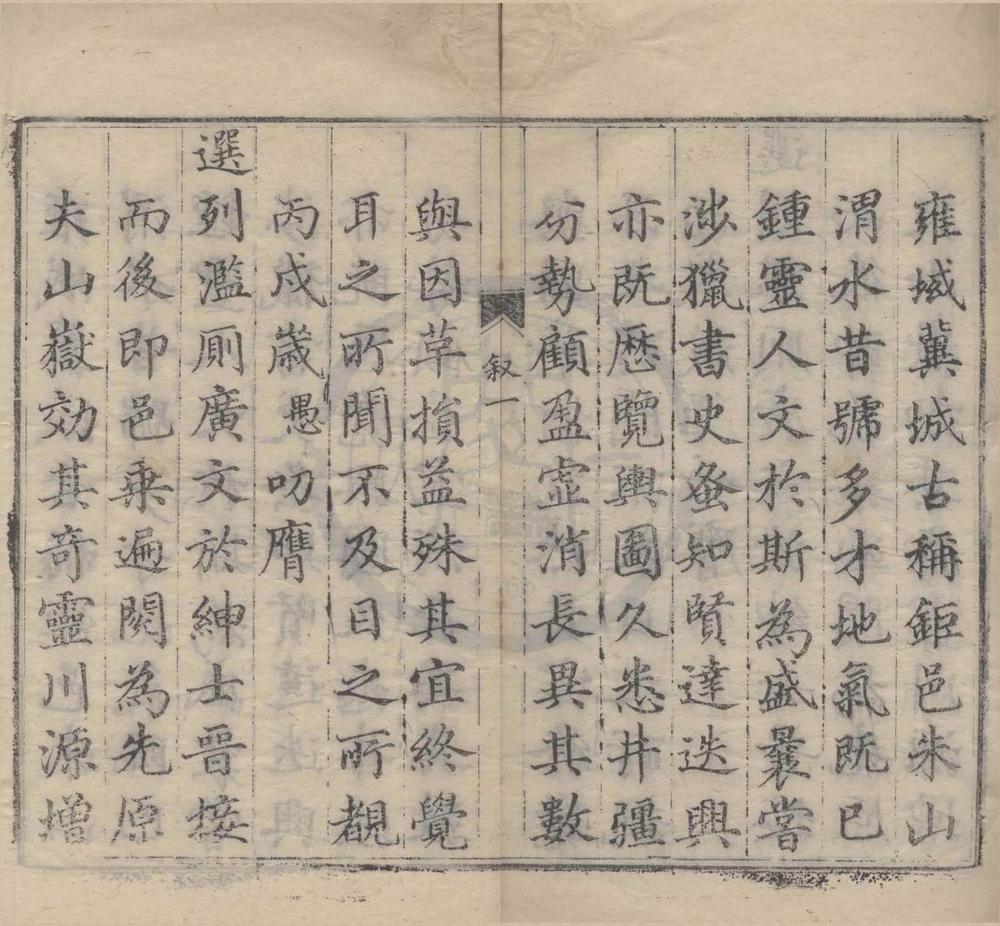 雍域冀城古稱鉅邑朱山
渭水昔號多才地氣既已
鍾靈人文於斯為盛曩嘗
涉獵書史蚤知賢達迭興
亦既歷覽輿圖久悉井疆
分勢顧盈虛消長異其數
叙一
與因革損益殊其宜終覺
耳之所聞不及目之所覩
丙戌歲愚叨膺
選列濫厠廣文於紳士晉接
而後即邑乗遍閱為先原
夫山嶽効其竒靈川源增